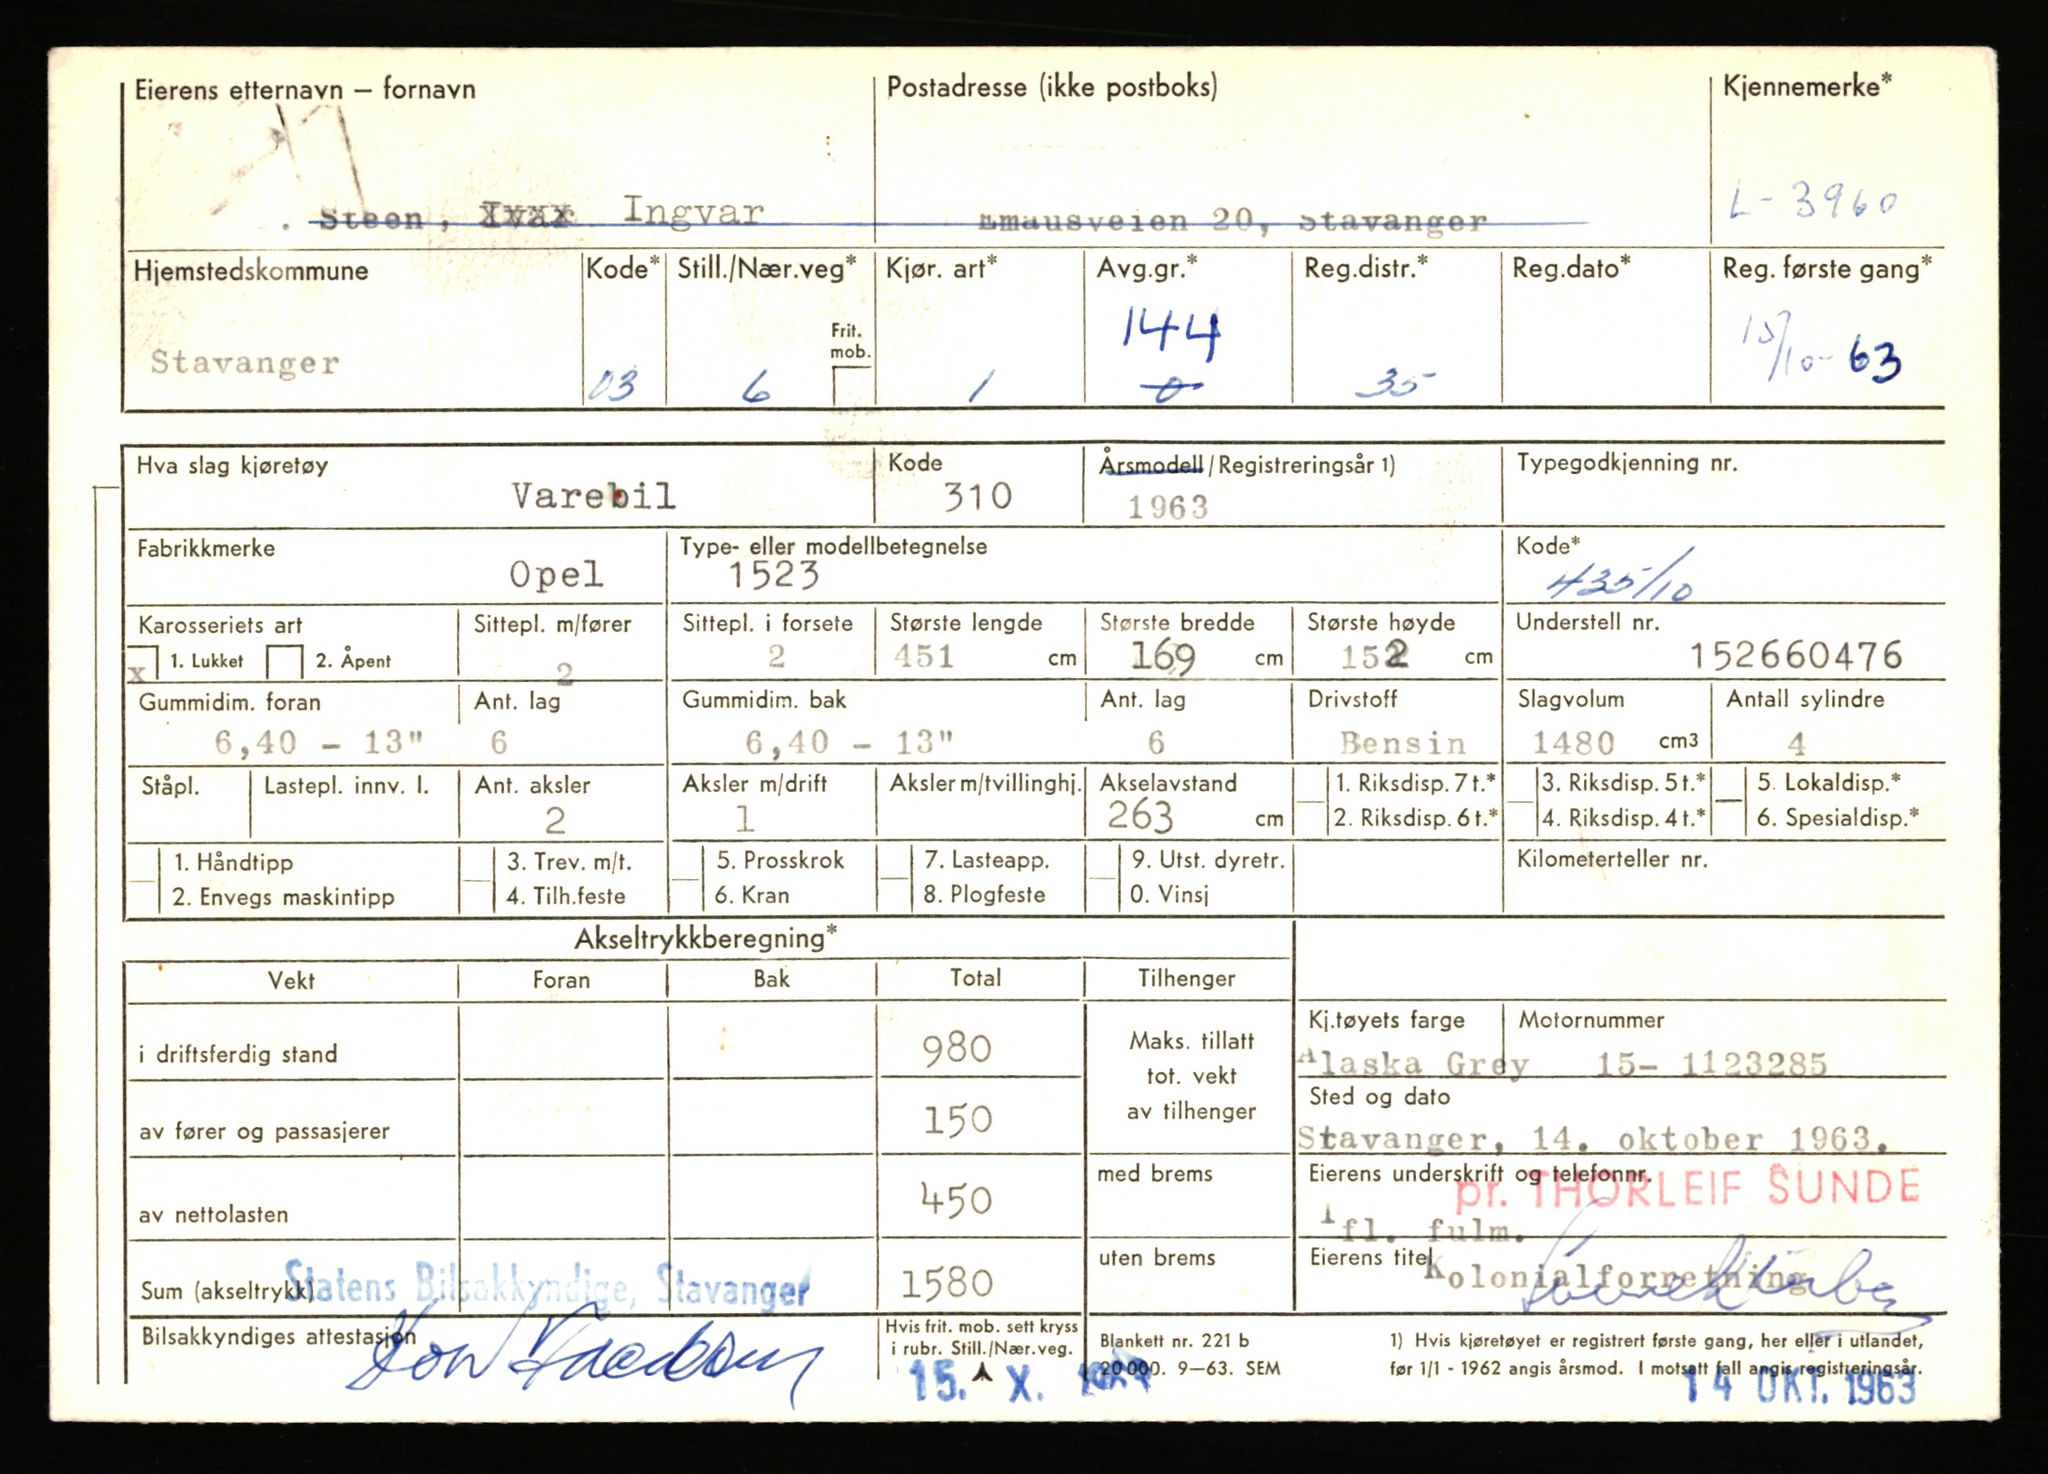 Eierens etternavn – fornavn Postadresse (ikke postboks) Kjennemerke*
Steen, Ivar Ingvar Emausveien 20, Stavanger L-3960
Hjemstedskommune Kode* Still./Nær.veg* Kjør. art* Avg.gr.* Reg.distr.* Reg.dato* Reg. første gang*
Frit. mob.
Stavanger 03 6 1 144 0 35 15/10-63
Hva slag kjøretøy Kode Årsmodell/Registreringsår 1) Typegodkjenning nr.
Varebil 310 1963
Fabrikkmerke Type- eller modellbetegnelse Kode*
Opel 1523 435/10
Karosseriets art Sittepl. m/fører Sittepl. i forsete Største lengde Største bredde Største høyde Understell nr.
x 1. Lukket 2. Åpent 2 2 451 cm 169 cm 152 cm 152660476
Gummidim. foran Ant. lag Gummidim. bak Ant. lag Drivstoff Slagvolum Antall sylindre
6,40 - 13" 6 6,40 - 13" 6 Bensin 1480 cm3 4
Ståpl. Lastepl. innv. l. Ant. aksler Aksler m/drift Aksler m/tvillinghj. Akselavstand 1. Riksdisp. 7 t.* 3. Riksdisp. 5 t.* 5. Lokaldisp.*
2 1 263 cm 2. Riksdisp. 6 t.* 4. Riksdisp. 4 t.* 6. Spesialdisp.*
1. Håndtipp 3. Trev. m/t. 5. Prosskrok 7. Lasteapp. 9. Utst. dyretr. Kilometerteller nr.
2. Envegs maskintipp 4. Tilh.feste 6. Kran 8. Plogfeste 0. Vinsj
Akseltrykkberegning*
Vekt Foran Bak Total Tilhenger
i driftsferdig stand 980 Maks. tillatt
tot. vekt
av tilhenger
Kj.tøyets farge Motornummer
Alaska Grey 15- 1123285
Sted og dato
av fører og passasjerer 150
Stavanger, 14. oktober 1963.
med brems Eierens underskrift og telefonnr.
pr. THORLEIF SUNDE
av nettolasten 450
Ifl. fulm.
uten brems Eierens titel
Kolonialforretning
Sum (akseltrykk) 1580
Statens Bilsakkyndige, Stavanger
Bilsakkyndiges attestasjon
Hvis frit. mob. sett kryss
i rubr. Still./Nær.veg.
Blankett nr. 221 b
20 000. 9–63. SEM
1) Hvis kjøretøyet er registrert første gang, her eller i utlandet,
før 1/1 - 1962 angis årsmod. I motsatt fall angis registreringsår.
15. X.
14 OKT. 1963